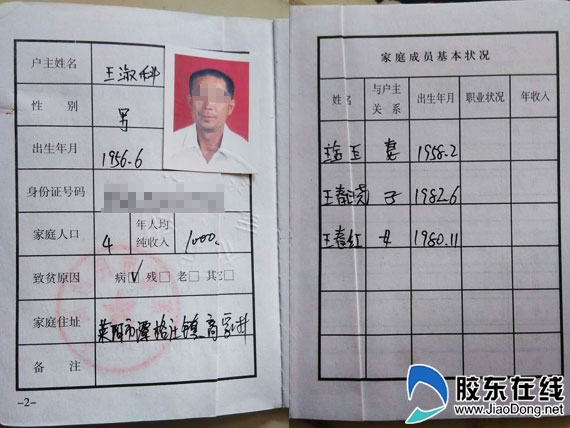 户主姓名 王淑科
性 别 男
出生年月 1956.6
身份证号码
家庭人口 4 年人均纯收入 1000.
致贫原因 病☑ 残□ 老□ 其它□
家庭住址 莱阳市谭格庄镇 家村
备 注
-2-
家庭成员基本状况
姓名 与户主关系 出生年月 职业状况 年收入
玉 妻 1958.2
王春晓 子 1982.6
王春红 女 1980.11
胶东在线
www.JiaoDong.net